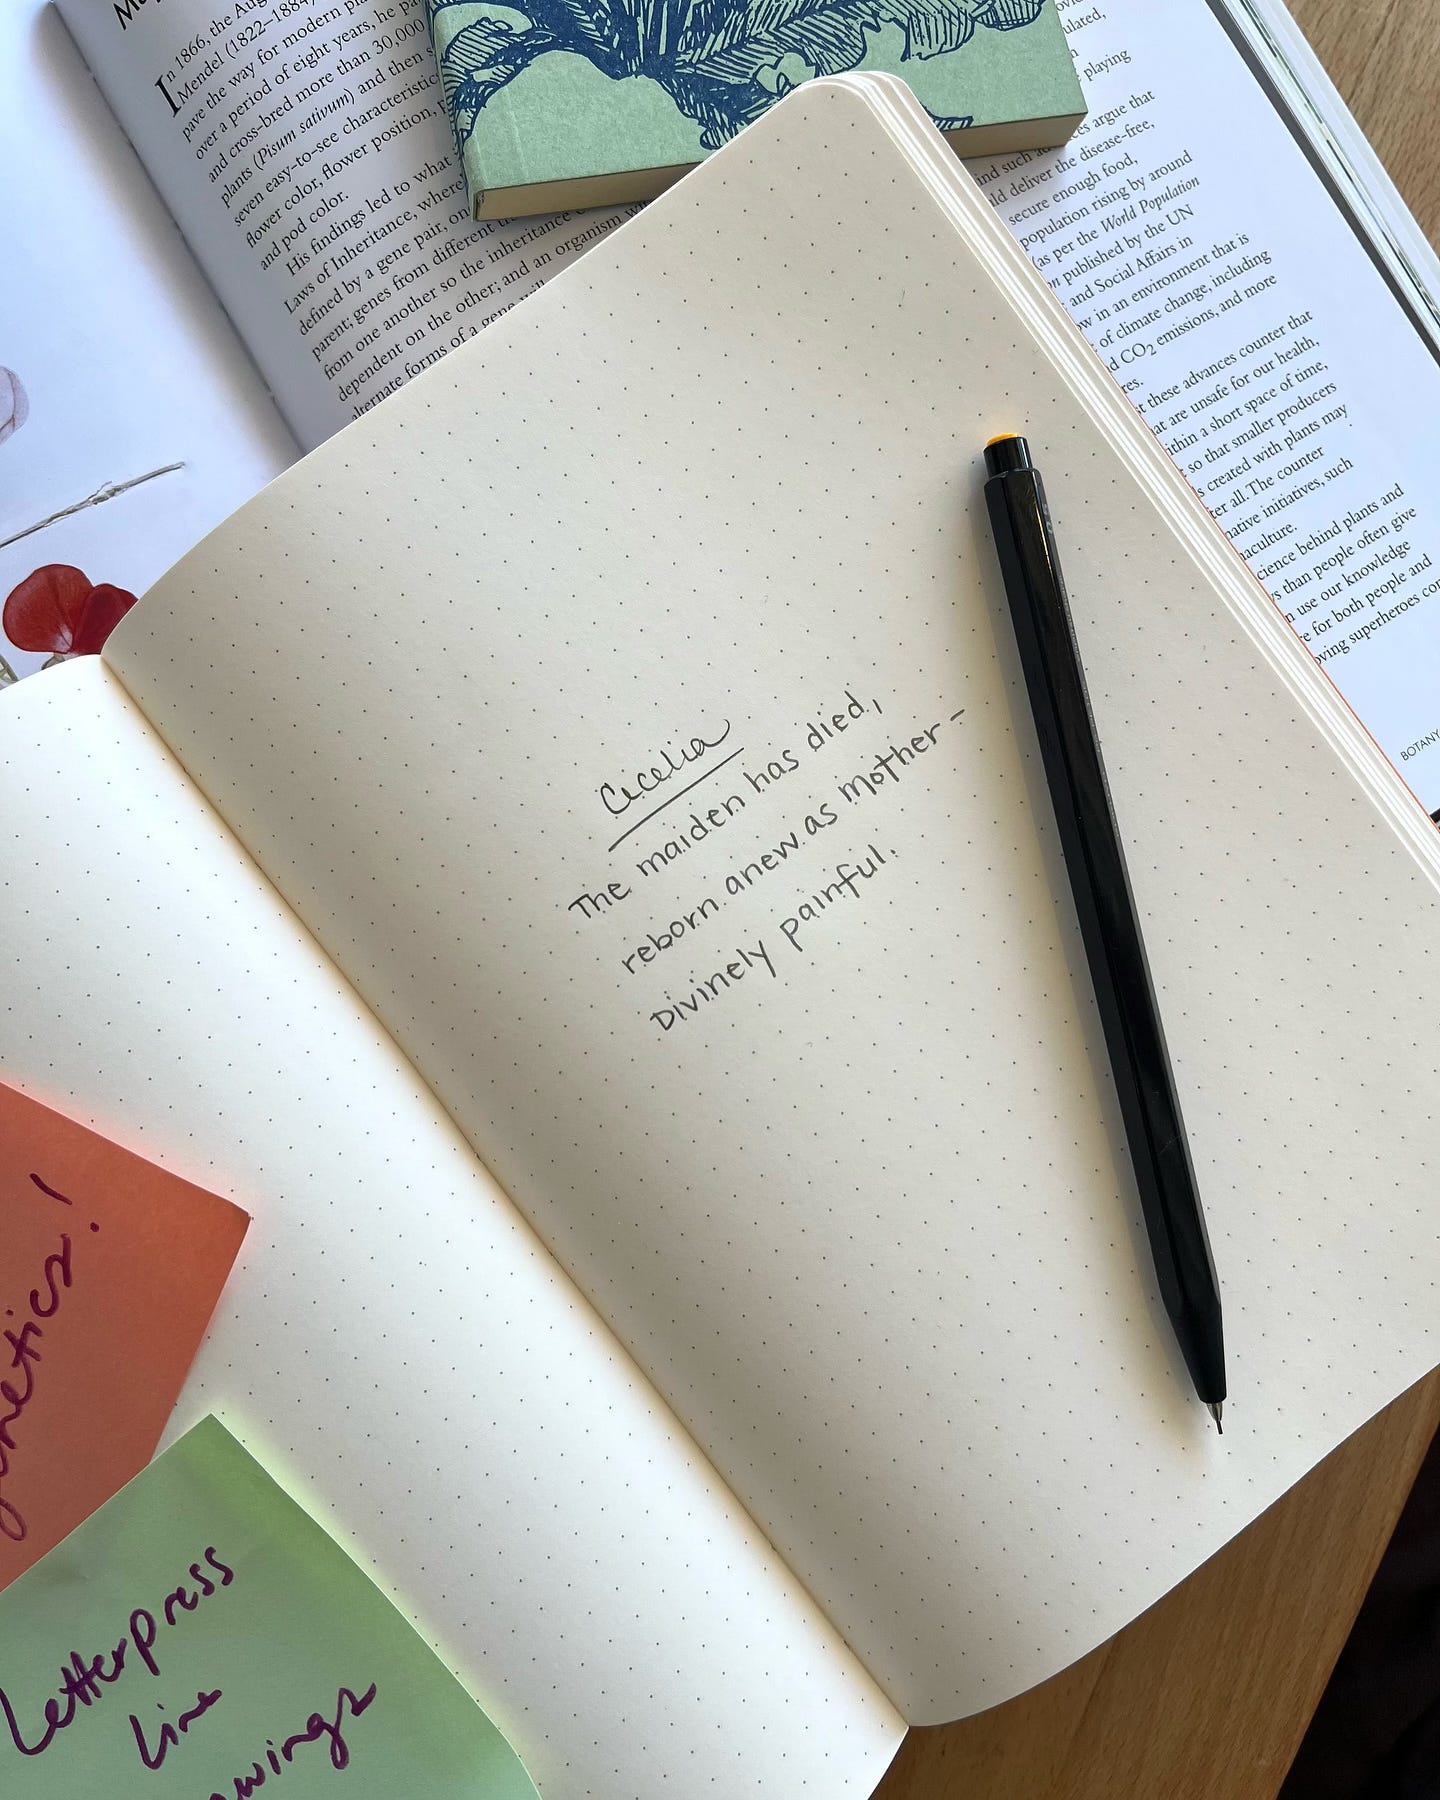 In 1866, the
Mendel (1822–1884)
pave the way for modern
over a period of eight years, he
and cross-bred more than 30,000
plants (Pisum sativum) and then
seven easy-to-see characteristic
flower color, flower position,
and pod color.
His findings led to what
Laws of Inheritance, where
defined by a gene pair, on
parent; genes from different
from one another so the inheritance
dependent on the other; and an organism
alternate forms of a gene will
playing
argue that
ind such
ld deliver the disease-free,
secure enough food,
population rising by around
(as per the World Population
published by the UN
and Social Affairs in
in an environment that is
of climate change, including
CO2 emissions, and more
these advances counter that
are unsafe for our health,
within a short space of time,
so that smaller producers
created with plants may
all. The counter
native initiatives, such
science behind plants and
than people often give
use our knowledge
for both people and
superheroes
BOTANY
Cecelia
The maiden has died,
reborn anew as mother–
Divinely painful.
Letterpress
line